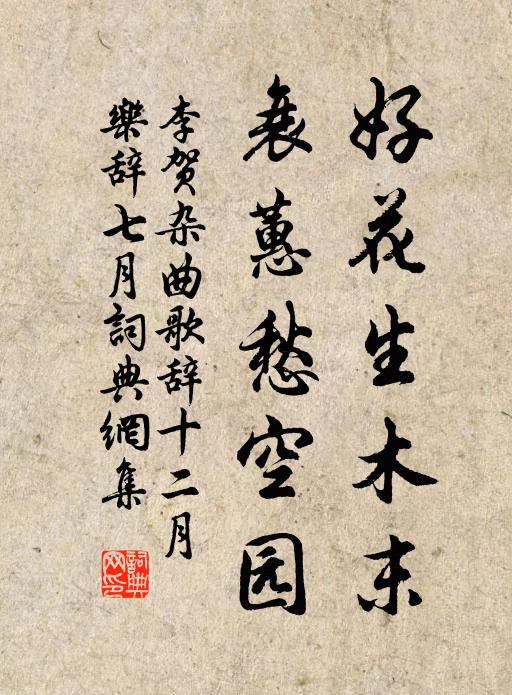 好花生木末
衰蕙愁空园
李贺杂曲歌辞十二月
樂辞七月詞典網集
詞典
网印